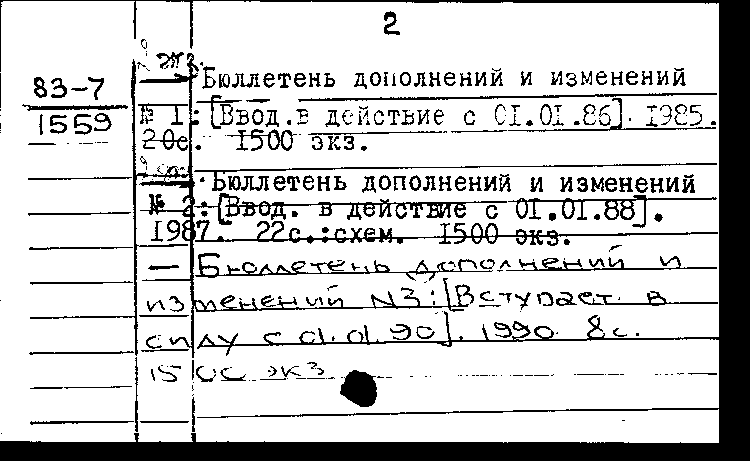 2
83-7
1559
2 экз.
— Бюллетень дополнений и изменений
№ 1:[Ввод.в действие с 01.01.86]. 1985.
20с. 1500 экз.
— Бюллетень дополнений и изменений
№ 2:[Ввод. в действие с 01.01.88].
1987. 22с.:схем. 1500 экз.
— Бюллетень дополнений и
изменений N3:[Вступает в
силу с 01.01.90]. 1990. 8с.
1500 экз